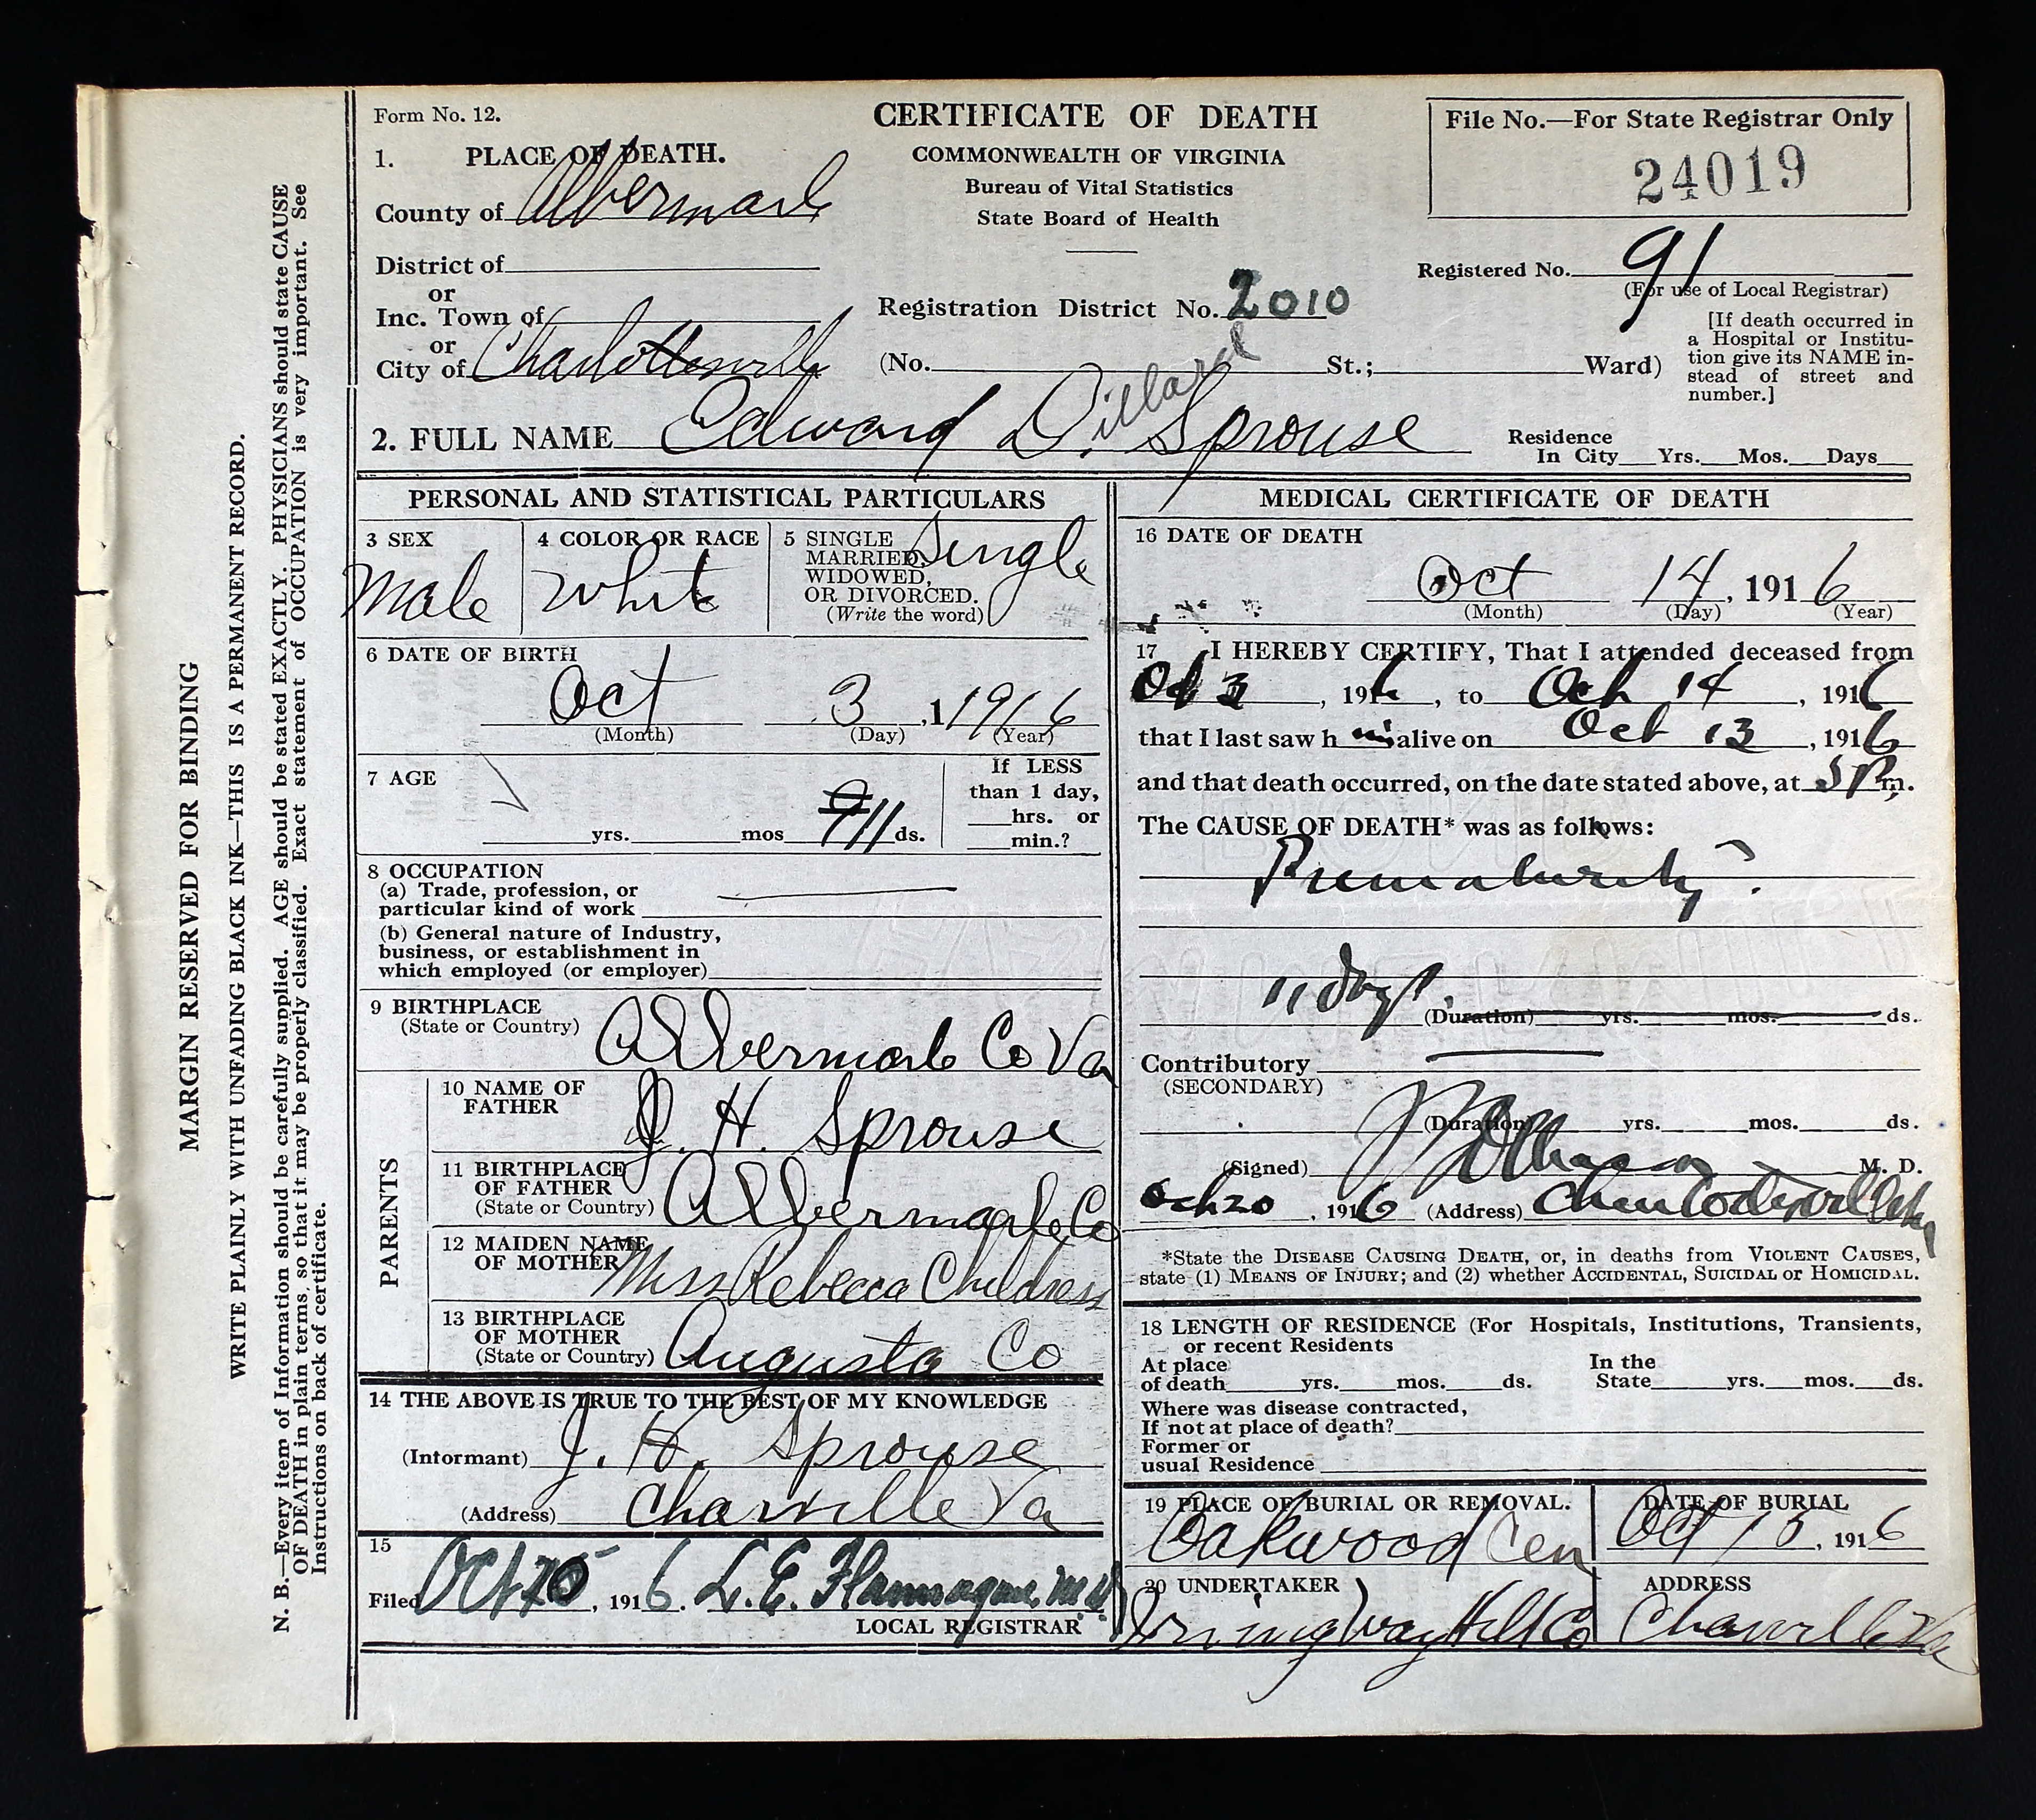 MARGIN RESERVED FOR BINDING
WRITE PLAINLY WITH UNFADING BLACK INK—THIS IS A PERMANENT RECORD.
N. B.—Every item of Information should be carefully supplied. AGE should be stated EXACTLY. PHYSICIANS should state CAUSE
OF DEATH in plain terms, so that it may be properly classified. Exact statement of OCCUPATION is very important. See
Instructions on back of certificate.
Form No. 12.
CERTIFICATE OF DEATH
COMMONWEALTH OF VIRGINIA
Bureau of Vital Statistics
State Board of Health
File No.—For State Registrar Only
24019
1. PLACE OF DEATH.
County of Albermarle
District of
or
Inc. Town of
or
City of Charlottesville
Registration District No. 2010
(No. St.; Ward)
Registered No. 91
(For use of Local Registrar)
[If death occurred in
a Hospital or Institu-
tion give its NAME in-
stead of street and
number.]
2. FULL NAME Edward D. illard Sprouse
Residence
In City Yrs. Mos. Days
PERSONAL AND STATISTICAL PARTICULARS
3 SEX
Male
4 COLOR OR RACE
White
5 SINGLE
MARRIED,
WIDOWED,
OR DIVORCED.
(Write the word)
Single
6 DATE OF BIRTH
Oct 3, 1 1916
(Month) (Day) (Year)
7 AGE
yrs. mos 9 11 ds.
If LESS
than 1 day,
hrs. or
min.?
8 OCCUPATION
(a) Trade, profession, or
particular kind of work
(b) General nature of Industry,
business, or establishment in
which employed (or employer)
9 BIRTHPLACE
(State or Country)
Albermarle Co Va
PARENTS
10 NAME OF
FATHER
J. H. Sprouse
11 BIRTHPLACE
OF FATHER
(State or Country)
Albermarle Co
12 MAIDEN NAME
OF MOTHER
Miss Rebecca Childress
13 BIRTHPLACE
OF MOTHER
(State or Country)
Augusta Co
14 THE ABOVE IS TRUE TO THE BEST OF MY KNOWLEDGE
(Informant) J. H. Sprouse
(Address) Charville Va
15
Filed Oct 20, 1916. L. E. M.D.
LOCAL REGISTRAR
MEDICAL CERTIFICATE OF DEATH
16 DATE OF DEATH
Oct 14, 1916
(Month) (Day) (Year)
17 I HEREBY CERTIFY, That I attended deceased from
Oct 3, 1916, to Oct 14, 1916
that I last saw h im alive on Oct 13, 1916
and that death occurred, on the date stated above, at 5 P m.
The CAUSE OF DEATH* was as follows:
Prematurity.
11 days.
(Duration) yrs. mos. ds.
Contributory
(SECONDARY)
(Duration) yrs. mos. ds.
(Signed) M. D.
Oct 20, 1916 (Address) Charlottesville Va
*State the DISEASE CAUSING DEATH, or, in deaths from VIOLENT CAUSES,
state (1) MEANS OF INJURY; and (2) whether ACCIDENTAL, SUICIDAL or HOMICIDAL.
18 LENGTH OF RESIDENCE (For Hospitals, Institutions, Transients,
or recent Residents
At place
of death yrs. mos. ds.
In the
State yrs. mos. ds.
Where was disease contracted,
If not at place of death?
Former or
usual Residence
19 PLACE OF BURIAL OR REMOVAL.
Oakwood Cem
DATE OF BURIAL
Oct 15, 1916
20 UNDERTAKER
Irving Way Hill Co
ADDRESS
Charville Va